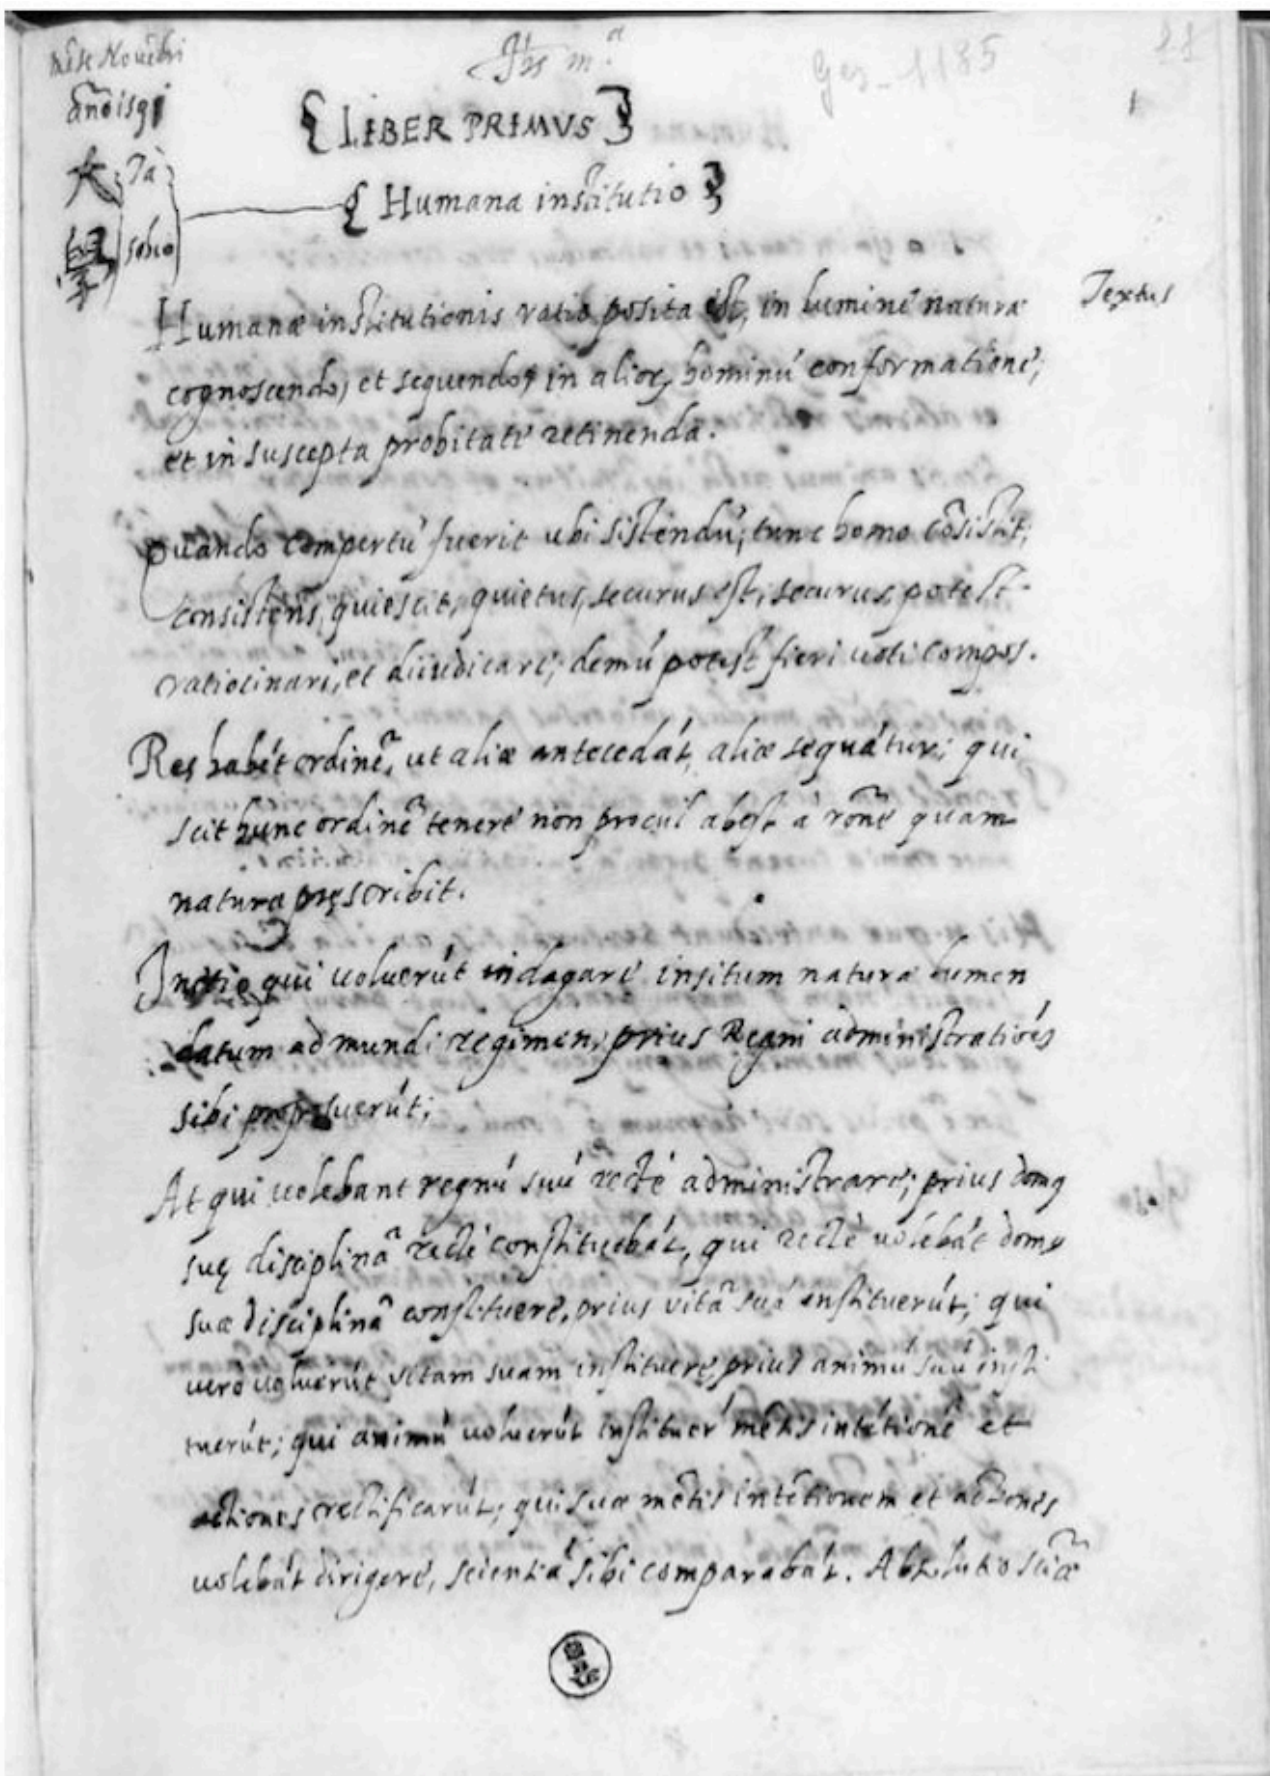 mẽse Nouẽbri
Jhs mª
Ges. 1185
11
1
ãno 1591
{LIBER PRIMVS}
大 Ta
{Humana institutio}
學 schio
Humanæ institutionis ratio posita est, in lumine naturæ
Textus
cognoscendo, et sequendo, in alior, hominú conformatione,
et in suscepta probitate retinenda.
Quando compertú fuerit ubi sistendú, tunc homo cõsistit,
consistens, quiescit, quietus, securus est, securus, potest
ratiocinari, et diiudicare, demú potest fieri uoti compos.
Res habẽt ordinẽ, ut aliæ antecedát, aliæ sequátur; qui
scit hunc ordinẽ tenere non procul abest á rõne quam
natura pręscribit.
Initio qui uoluerút indagare insitum natura lumen
datum ad mundi regimen, prius Regni administratiões
sibi proposuerút;
At qui uolebant regnú suú recté administrare; prius domq
suę disciplinã recté constituebát, qui recté uolebát domq
suæ disciplinã constituere, prius vitã suá instituerút; qui
vero uoluerút vitam suam instituere, prius animú suú insti
tuerút; qui animú uoluerút instituer mẽtis intẽtionẽ et
actiones rectificarút; qui suæ mẽtis intẽtionem et actiones
uolebát dirigere, scientiã sibi comparabát. Absolutio sciã